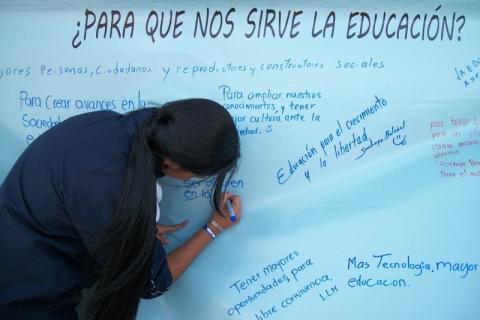 ¿PARA QUE NOS SIRVE LA EDUCACIÓN?
jores Personas, Ciudadanos y reproductores y constructores sociales
Para Crear avances en la
Sociedad
Para ampliar nuestros
conocimientos, y tener
jor cultura ante la
iedad.
Educación para el crecimiento
y la libertad
en la
Tener mayores
oportunidades, para
libre convivencia.
LLM
Mas Tecnología, mayor
educacion.
para tener